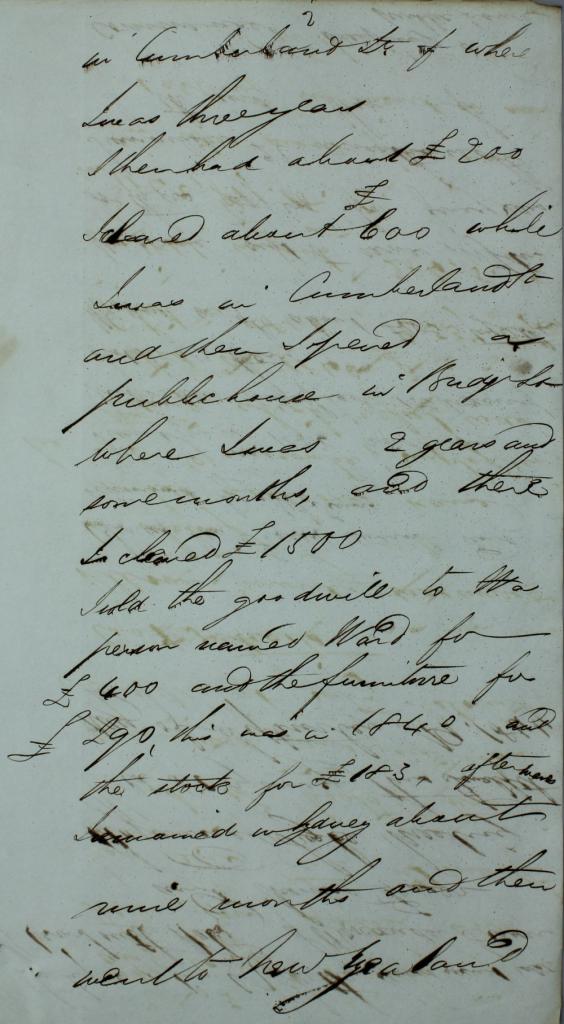 2
in Cumberland St of where
I was three years
I then had about £200
I cleared about £600 while
I was in Cumberland St
and then I opened a
public house in Bridge St
where I was 2 years and
some months, and there
I cleared £1500
I sold the goodwill to a
person named Ward for
£400 and the furniture for
£290, this was in 1840 and
the stock for £183, after
I remained in Sydney about
nine months and then
went to New Zealand